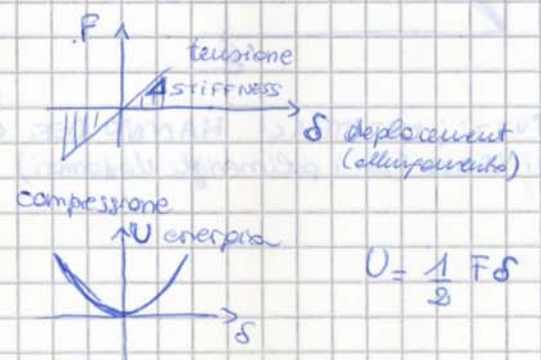 F
tensione
STIFFNESS
δ deplacement
(allungamento)
compressione
U energia
U = 1/2 Fδ
δ